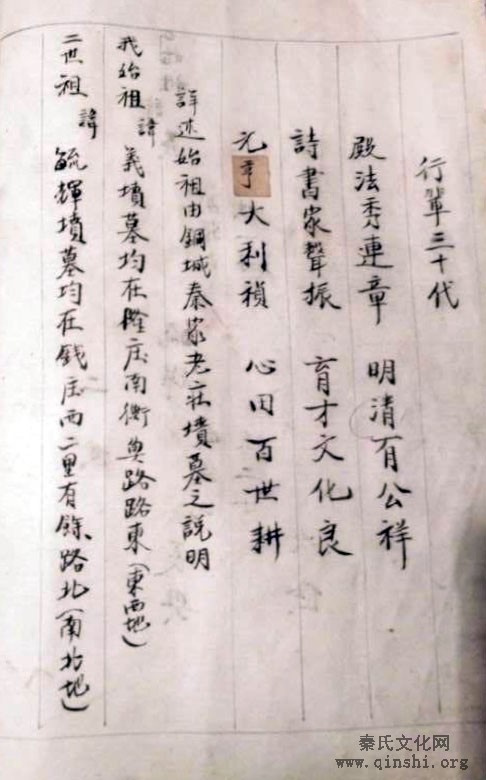 行輩三十代
殿法秀連章 明清有公祥
詩書家聲振 育才文化良
元亨大利禎 心田百世耕
詳述始祖由銅城秦家老莊墳墓之說明
我始祖 諱 義墳墓均在 庄南衝與路路東(東西地)
二世祖 諱 毓輝墳墓均在錢庄西二里有餘路北(南北地)
秦氏文化网
www.qinshi.org